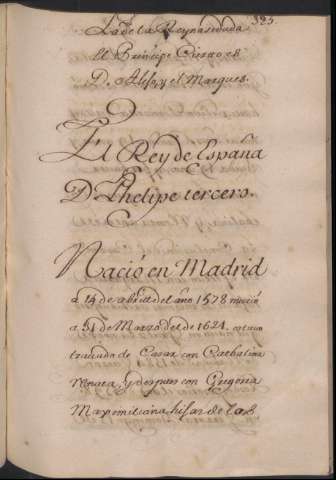 325.
La de la Reyna viuda
El Principe Cierto es
D. Alefo, y el Marques.
El Rey de España
Dn Phelipe tercero.
Nació en Madrid
a 14 de abril del año 1578 murió
a 31 de Marzo del de 1621. estuvo
tratado de Casar con Cathalina
Renata, y despues con Gregoria
Maxemiliana hijas de la S.